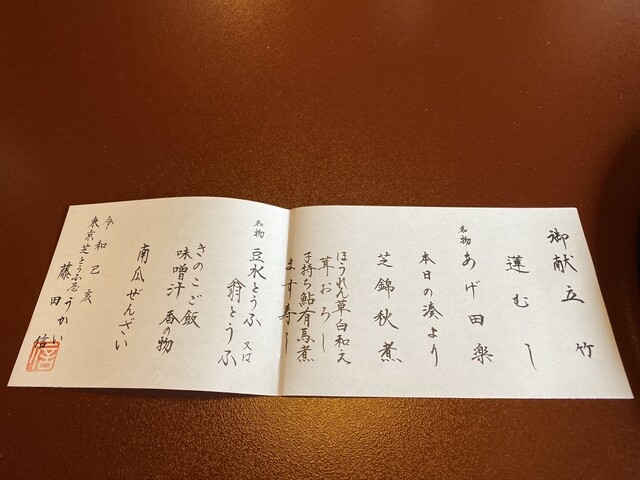 御献立 竹
蓮むし
名物 あげ田楽
本日の湊より
芝錦秋煮
ほうれん草白和え
茸おろし
子持ち鮎有馬煮
ます寿し
名物 豆水とうふ 又は
翁とうふ
きのこご飯
味噌汁 香の物
南瓜ぜんざい
令和己亥
東京芝とうふ屋うかい
藤田 信
信